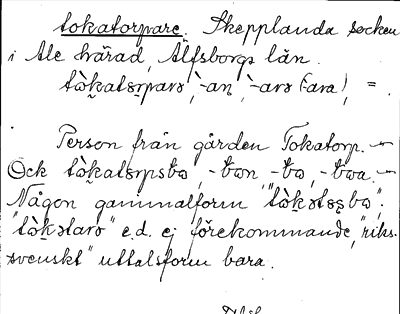 tokatorpare. Skepplanda socken
i Ale härad, Älfsborgs län.
tòkatərparə, -an, -arə (-ara), =.
Person från gården Tokatorp. –
Ock tòkatərpsbə, -bən -bə, -bəa. –
Någon gammal form "
" e.d. ej förekommande, "riks-
svenskt" uttalsform bara.